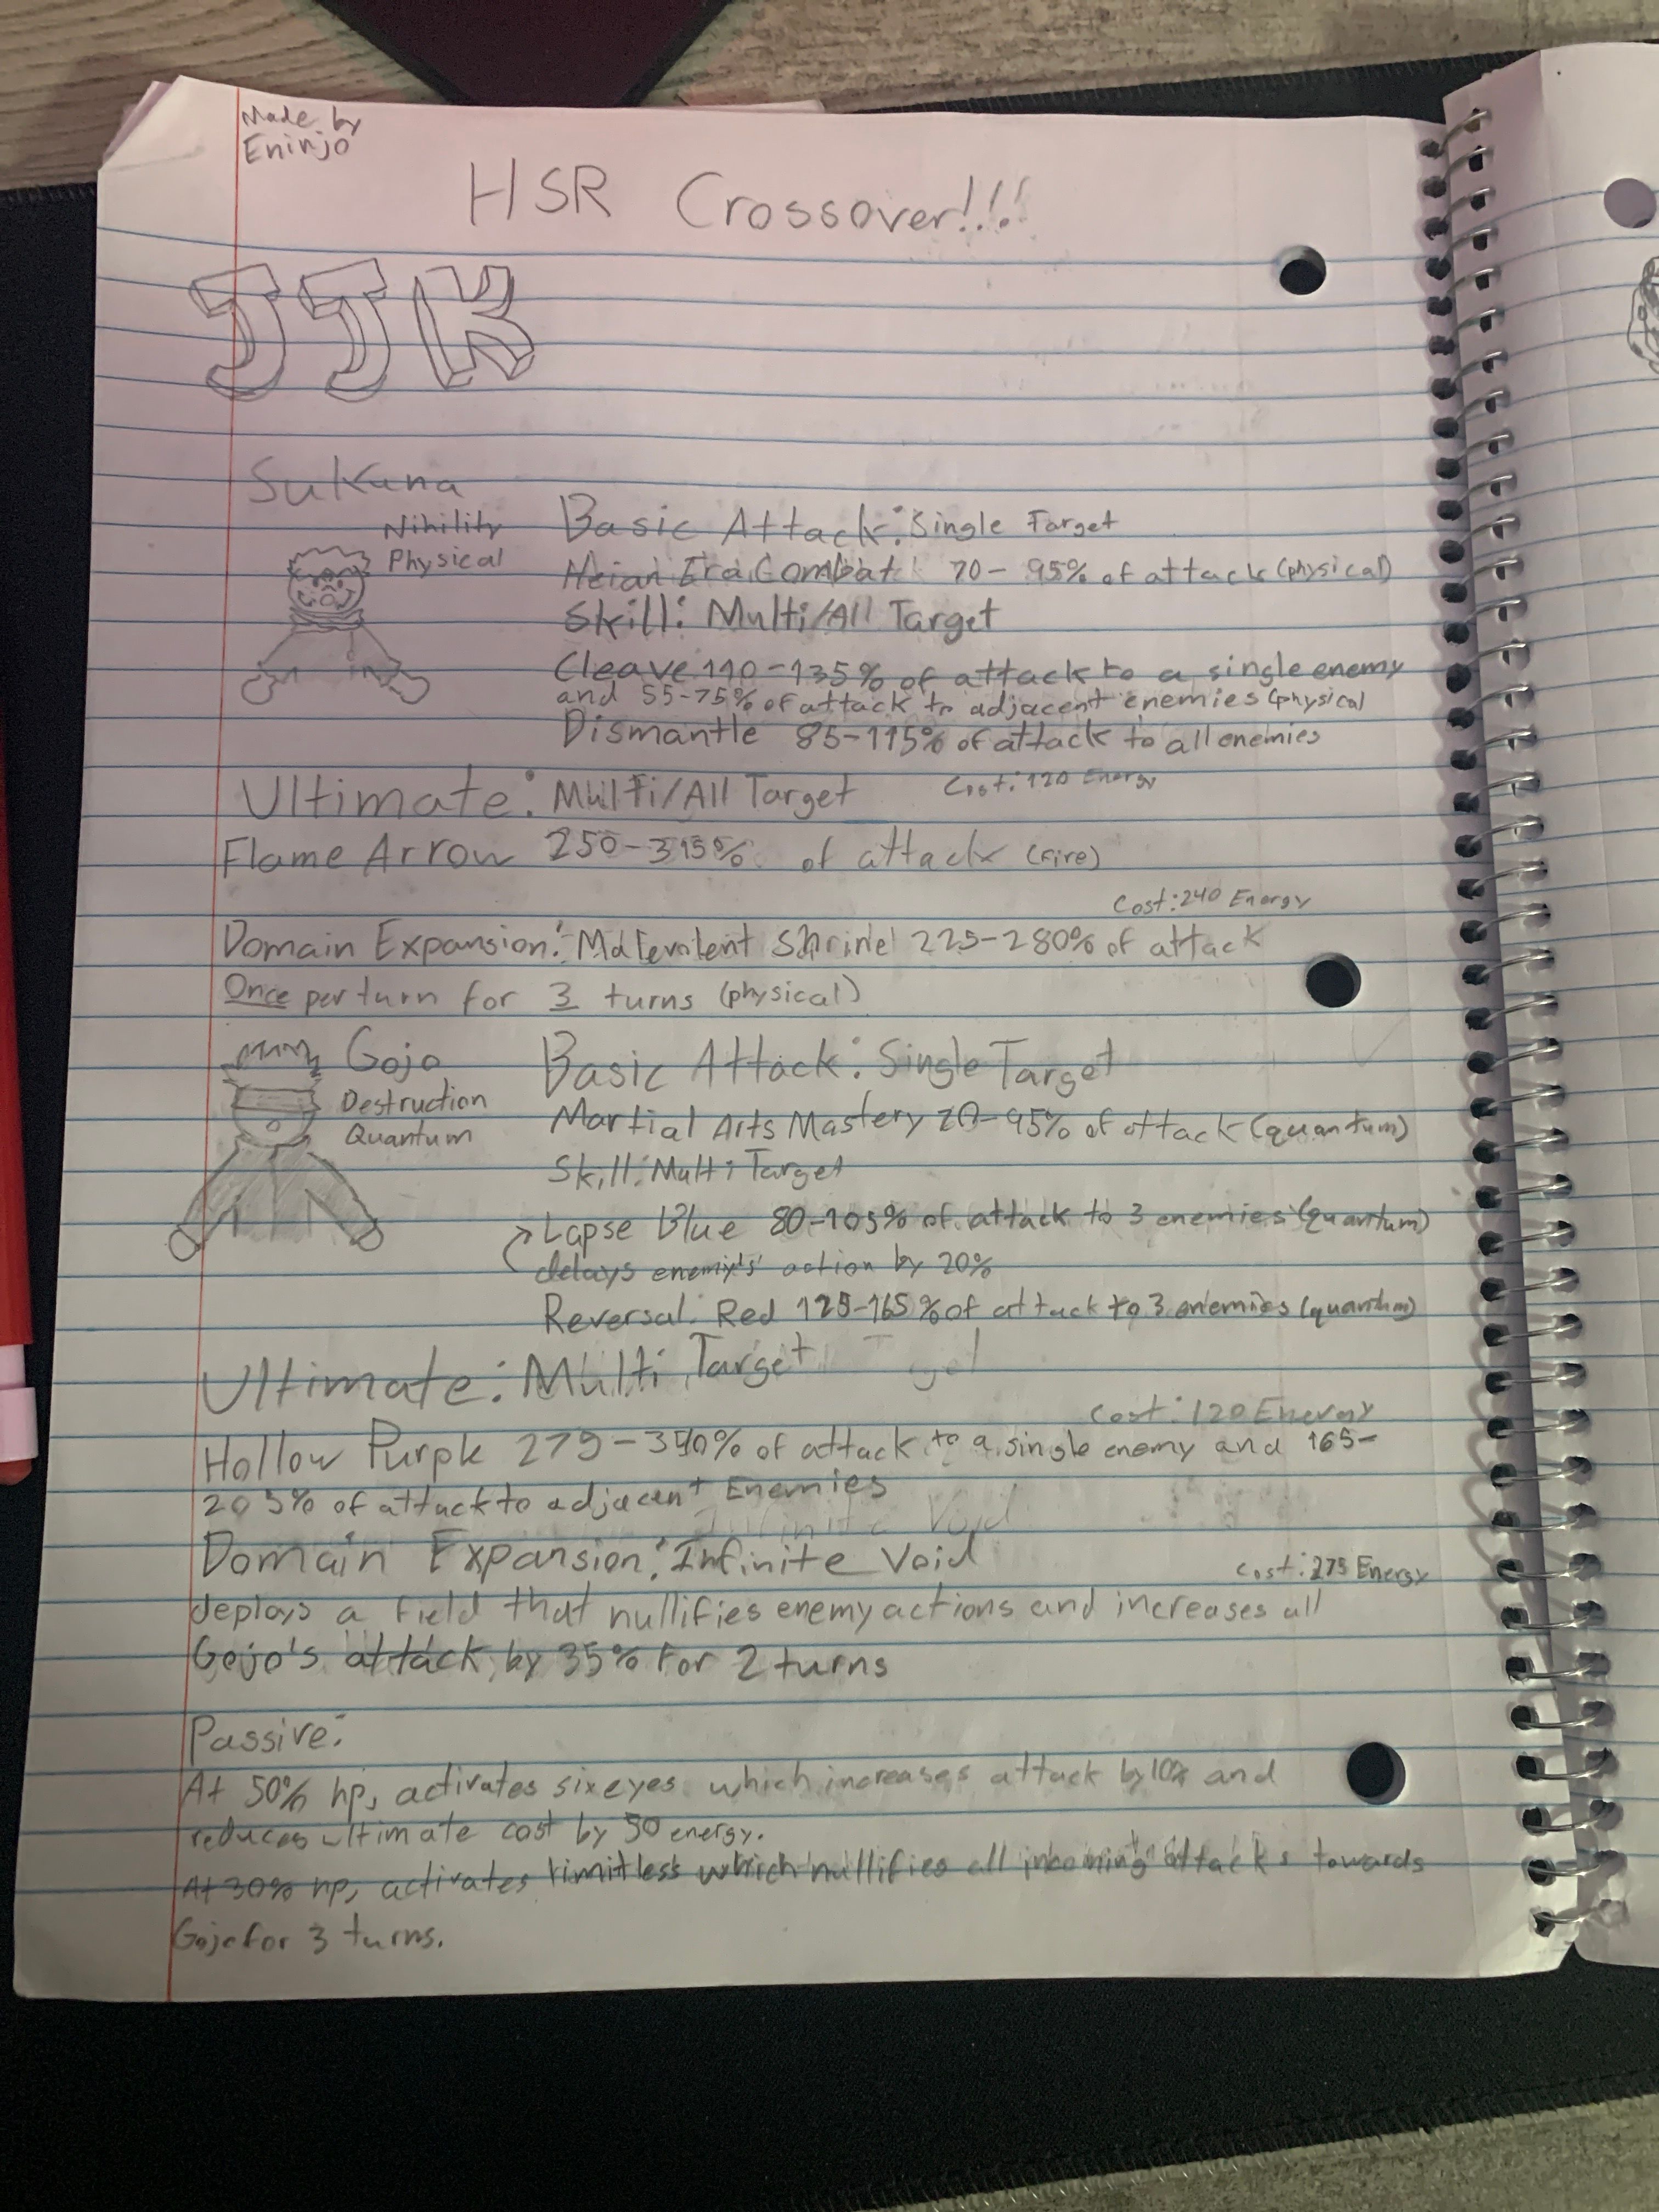 Made by
Eninjo
HSR Crossover!!!
JJK
Sukuna
Nihility
Physical
Basic Attack: Single Target
Heian Era Combat 70-95% of attack (physical)
Skill: Multi/All Target
Cleave 110-135% of attack to a single enemy
and 55-75% of attack to adjacent enemies (physical
Dismantle 85-115% of attack to all enemies
Ultimate: Multi/All Target
Cost: 120 Energy
Flame Arrow 250-315% of attack (Fire)
Cost: 240 Energy
Domain Expansion: Malevolent Shrine 225-280% of attack
Once per turn for 3 turns (physical)
Gojo
Destruction
Quantum
Basic Attack: Single Target
Martial Arts Mastery 70-95% of attack (quantum)
Skill: Multi Target
Lapse Blue 80-105% of attack to 3 enemies (quantum)
delays enemy's action by 20%
Reversal: Red 125-165% of attack to 3 enemies (quantum)
Ultimate: Multi Target
Cost: 120 Energy
Hollow Purple % of attack to a single enemy and 165-
205% of attack to adjacent Enemies
Domain Expansion: Infinite Void
Cost: 275 Energy
deploys a field that nullifies enemy actions and increases all
Gojo's attack by 35% for 2 turns
Passive:
At 50% hp, activates six eyes which increases attack by 10% and
reduces ultimate cost by 50 energy.
At 30% hp, activates limitless which nullifies all incoming attacks towards
Gojo for 3 turns.